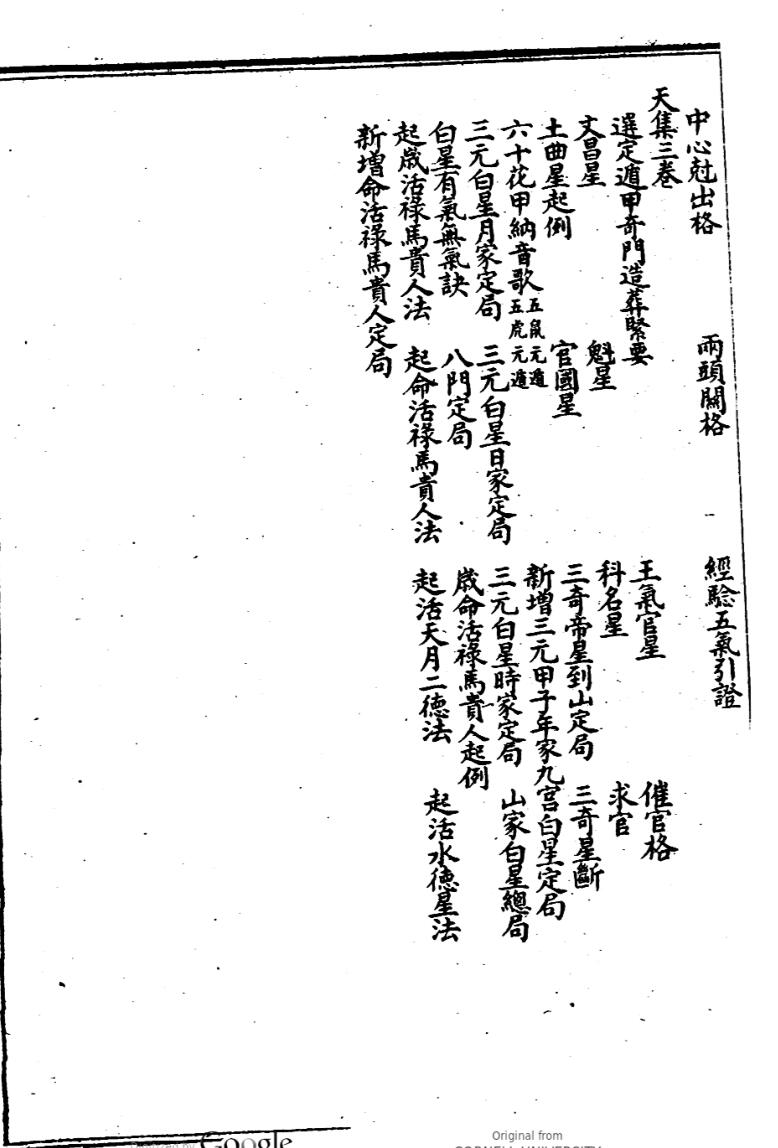 中心尅出格　兩頭關格　經驗五氣引證
天集三卷
選定遁甲奇門造葬緊要　王氣官星　催官格
文昌星　魁星　科名星　求官
土曲星起例　官國星　三奇帝星到山定局　三奇星斷
六十花甲納音歌　五鼠元遁　五虎元遁　新增三元甲子年家九宮白星定局
三元白星月家定局　三元白星日家定局　三元白星時家定局　山家白星總局
白星有氣無氣訣　八門定局　歲命活祿馬貴人起例
起歲活祿馬貴人法　起命活祿馬貴人法　起活天月二德法　起活水德星法
新增命活祿馬貴人定局
Google
Original from
CORNELL UNIVERSITY